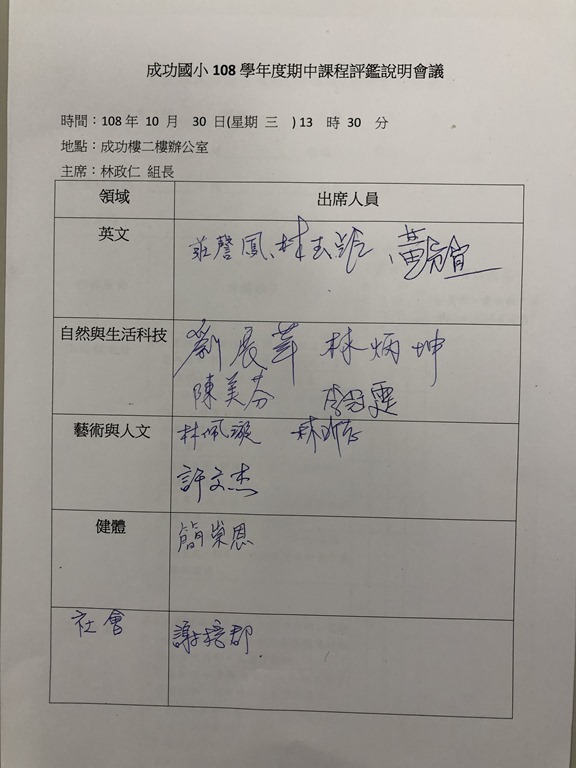 成功國小 108 學年度期中課程評鑑說明會議
時間：108 年 10 月 30 日(星期 三 ) 13 時 30 分
地點：成功樓二樓辦公室
主席：林政仁 組長
領域 出席人員
英文 莊謦鳳、林玉
自然與生活科技 劉展 林炳坤
陳美芬
藝術與人文 林佩漩
許文杰
健體 簡崇恩
社會 謝培郡